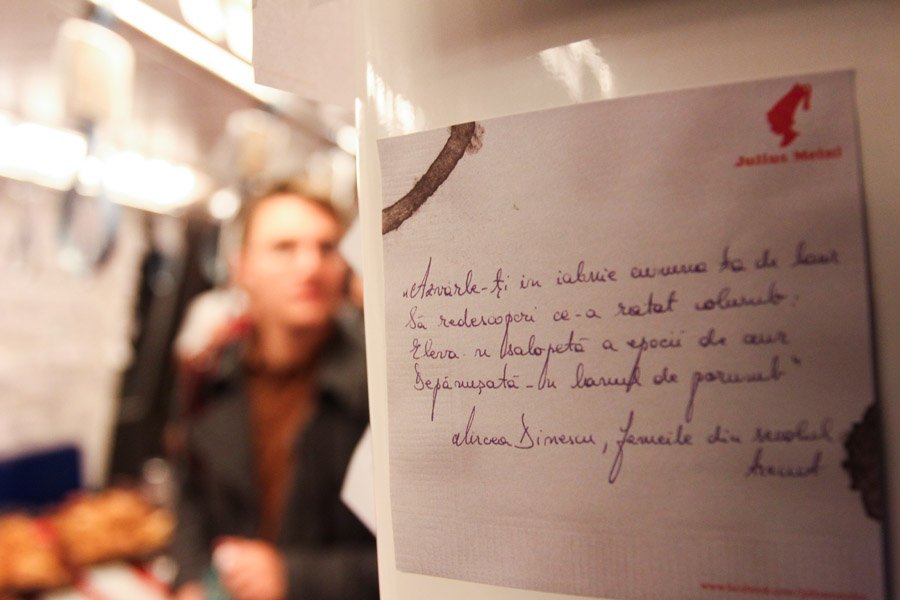 Julius Meinl
„Azvârle-ți în iabrie cununa ta de laur
Să redescoperi ce-a ratat columb:
Eleva-n salopetă a epocii de aur
Depănușată-n lanul de porumb"
Mircea Dinescu, femeile din secolul
trecut